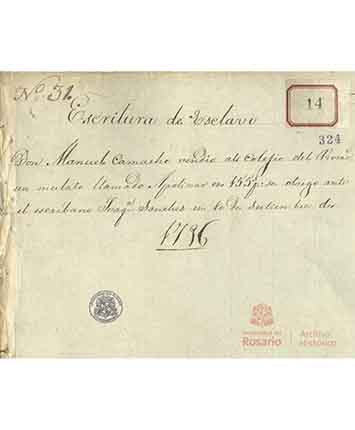 No. 31.
14
Escritura de Esclavo
324
Don Manuel Camacho vendio al Colegio del Rosario
un mulato llamado Apolinar en 155 ps. se otorgo ante
el escribano Joaqn. Sanches en 10 de Setiembre de
1736
Universidad del
Rosario
Archivo
Histórico